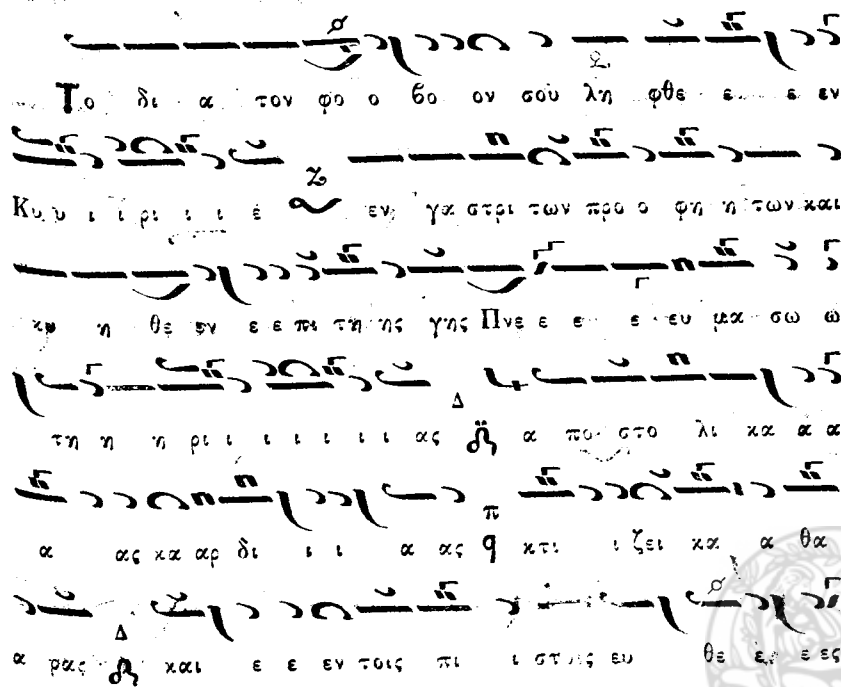 Το δι α τον φο ο βο ον σου λη φθε ε ε εν
Κυ υ ι ι ρι ι ι ε εν γα στρι των προ ο φη η των και
κυ η θε εν ε ε πι τη ης γης Πνε ε ε ε ευ μα σω ω
τη η η ρι ι ι ι ι ι ι ας Δ α πο στο λι κα α α
α ας κα αρ δι ι ι α ας π q κτι ι ζει κα α θα
α ρας Δ και ε ε εν τοις πι ι στοις ευ θε ε ε ες